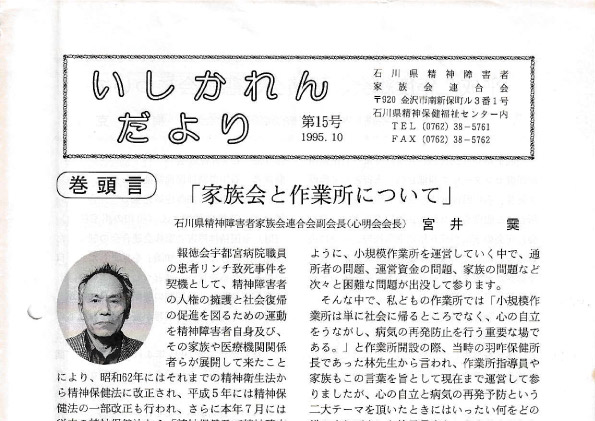 いしかれん
だより
第15号
1995.10
石川県精神障害者
家族会連合会
〒920 金沢市南新保町ル3番1号
石川県精神保健福祉センター内
TEL (0762) 38-5761
FAX (0762) 38-5762
巻頭言
「家族会と作業所について」
石川県精神障害者家族会連合会副会長(心明会会長) 宮井
報徳会宇都宮病院職員
の患者リンチ致死事件を
契機として、精神障害者
の人権の擁護と社会復帰
の促進を図るための運動
を精神障害者自身及び、
その家族や医療機関関係
者らが展開して来たこと
により、昭和62年にはそれまでの精神衛生法か
ら精神保健法に改正され、平成5年には精神保
健法の一部改正も行われ、さらに本年7月には
ように、小規模作業所を運営していく中で、通
所者の問題、運営資金の問題、家族の問題など
次々と困難な問題が出没して参ります。
そんな中で、私どもの作業所では「小規模作
業所は単に社会に帰るところでなく、心の自立
をうながし、病気の再発防止を行う重要な場で
ある。」と作業所開設の際、当時の羽咋保健所
長であった林先生から言われ、作業所指導員や
家族もこの言葉を旨として現在まで運営して参
りましたが、心の自立と病気の再発予防という
二大テーマを頂いたときにはいったい何をどの